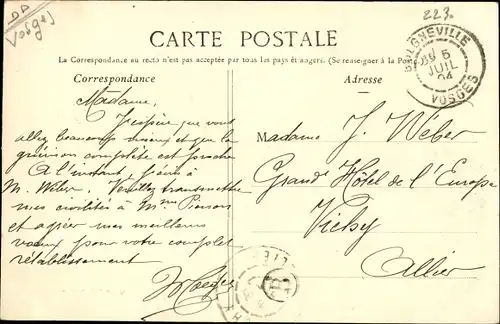 Vosges
223.
CARTE POSTALE
La Correspondance au recto n'est pas acceptée par tous les pays étrangers. (Se renseigner à la Poste
Correspondance
Adresse
BULGNEVILLE
5
JUIL
04
VOSGES
Madame,
J'espère que vous
allez beaucoup mieux et que la
guérison complète est proche
A l'instant j'écris à
M. Wéber. Veuillez transmettre
mes civilités à Mme Pierson
et agréer mes meilleurs
vœux pour votre complet
rétablissement
Madame J. Wéber
Grand Hôtel de l'Europe
Vichy
Allier